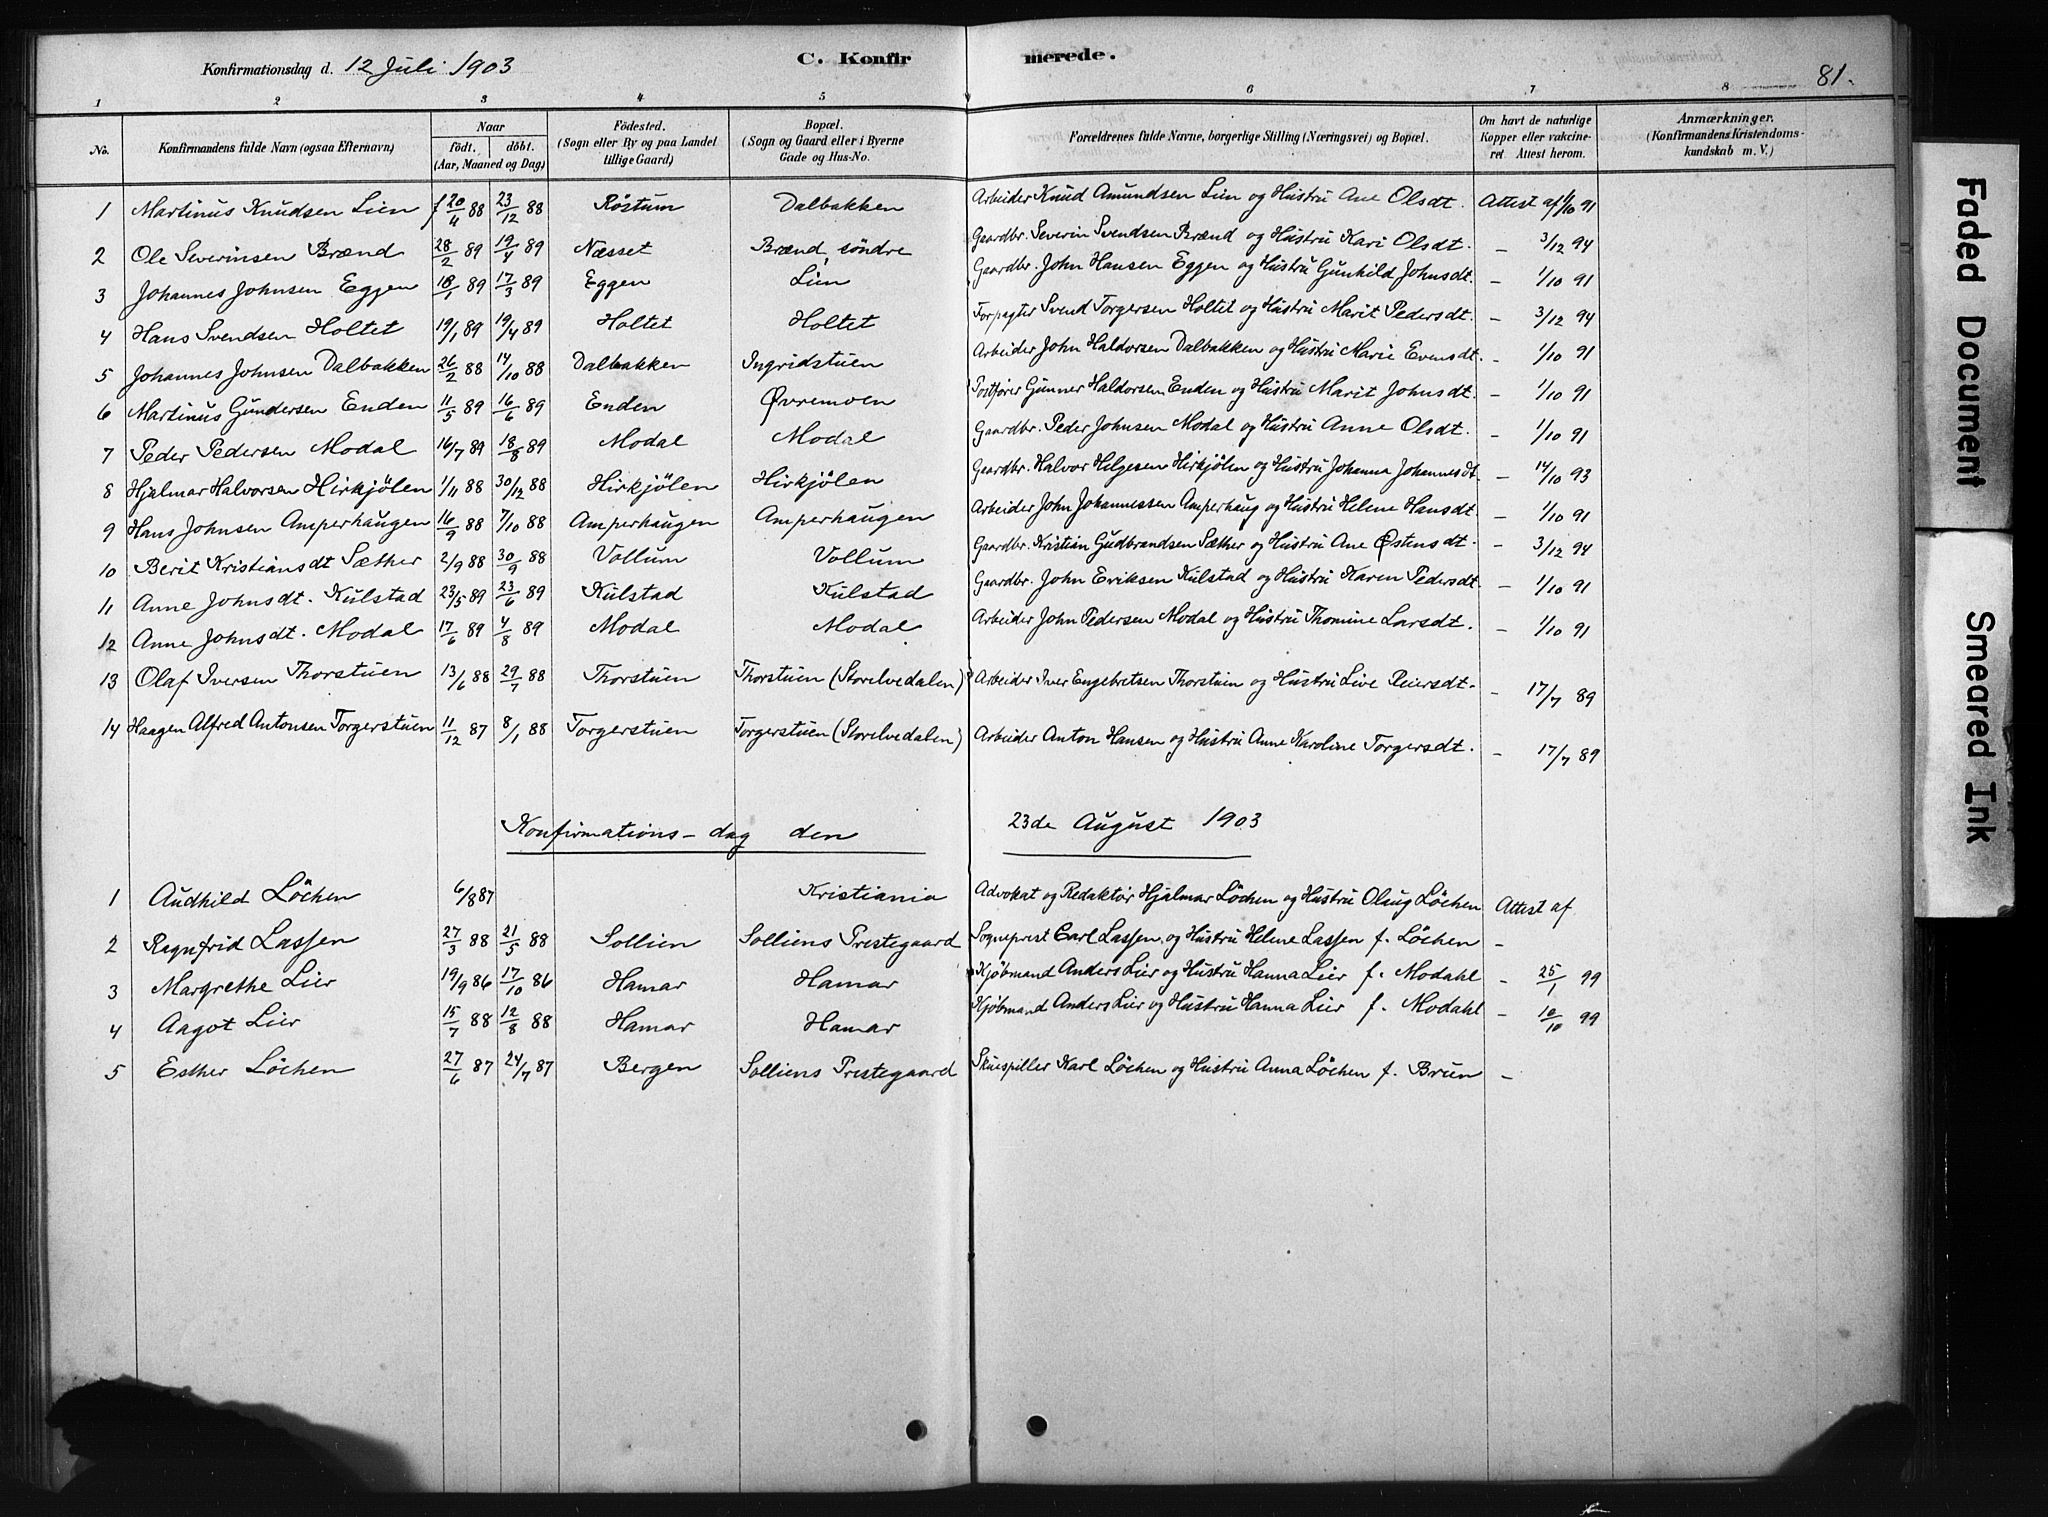 Konfirmationsdag d. 12 Juli 1903 C. Konfirmerede. 81.
1 2 3 4 5 6 7 8
No. Konfirmandens fulde Navn (ogsaa Efternavn) Naar født. døbt. (Aar, Maaned og Dag) Födested. (Sogn eller By og paa Landet tillige Gaard) Bopæl. (Sogn og Gaard eller i Byerne Gade og Hus-No. Forældrenes fulde Navne, borgerlige Stilling (Næringsvei) og Bopæl. Om havt de naturlige Kopper eller vakcineret Attest herom. Anmærkninger. (Konfirmandens Kristendomskundskab m. V.)
1 Martinus Knudsen Lien f 20/4 88 23/12 88 Röstum Dalbakken Arbeider Knud Amundsen Lien og Hustru Ane Olsdt. Attest af 1/10 91
2 Ole Severinsen Brænd 28/2 89 19/4 89 Næsset Brænd, söndre Gaardbr. Severin Svendsen Brænd og Hustru Kari Olsdt. - 3/12 94
3 Johannes Johnsen Eggen 18/1 89 17/3 89 Eggen Lien Gaardbr. John Hansen Eggen og Hustru Gunhild Johnsdt. - 1/10 91
4 Hans Svendsen Holtet 19/1 89 19/4 89 Holtet Holtet Forpagter Svend Torgersen Holtet og Hustru Marit Pedersdt. - 3/12 94
5 Johannes Johnsen Dalbakken 26/2 88 14/10 88 Dalbakken Ingridstuen Arbeider John Haldorsen Dalbakken og Hustru Marie Evensdt. - 1/10 91
6 Martinus Gundersen Enden 11/5 89 16/6 89 Enden Øvremoen Postfører Gunner Haldorsen Enden og Hustru Marit Johnsdt. - 1/10 91
7 Peder Pedersen Modal 16/7 89 18/8 89 Modal Modal Gaardbr. Peder Johnsen Modal og Hustru Anne Olsdt. - 1/10 91
8 Hjalmar Halvorsen Hirkjölen 1/11 88 30/12 88 Hirkjölen Hirkjölen Gaardbr. Halvor Helgesen Hirkjölen og Hustru Johanna Johannesdt. - 14/10 93
9 Hans Johnsen Amperhaugen 16/9 88 7/10 88 Amperhaugen Amperhaugen Arbeider John Johannessen Amperhaug og Hustru Helene Hansdt. - 1/10 91
10 Berit Kristiansdt Sæther 2/9 88 30/9 88 Vollum Vollum Gaardbr. Kristian Gudbrandsen Sæther og Hustru Ane Østensdt. - 3/12 94
11 Anne Johnsdt. Kulstad 23/5 89 23/6 89 Kulstad Kulstad Gaardbr. John Eriksen Kulstad og Hustru Karen Pedersdt. - 1/10 91
12 Anne Johnsdt. Modal 17/6 89 4/8 89 Modal Modal Arbeider John Pedersen Modal og Hustru Thomine Larsdt. - 1/10 91
13 Olaf Iversen Thorstuen 13/6 88 29/7 88 Thorstuen Thorstuen (Storelvedalen) Arbeider Iver Engebretsen Thorstuen og Hustru Live Peiersdt. - 17/7 89
14 Haagen Alfred Antonsen Torgerstuen 11/12 87 8/1 88 Torgerstuen Torgerstuen (Storelvedalen) Arbeider Anton Hansen og Hustru Anne Karoline Torgersdt. - 17/7 89
Konfirmations-dag den 23de August 1903
1 Audhild Löchen 6/8 87 Kristiania Advokat og Redaktør Hjalmar Löchen og Hustru Olaug Löchen Attest af
2 Regnfrid Lassen 27/3 88 21/5 88 Sollien Solliens Prestegaard Sogneprest Carl Lassen og Hustru Helene Lassen f. Löchen -
3 Margrethe Lier 19/9 86 17/10 86 Hamar Hamar Kjøbmand Anders Lier og Hustru Hanna Lier f. Modahl - 25/1 99
4 Aagot Lier 15/7 88 12/8 88 Hamar Hamar Kjøbmand Anders Lier og Hustru Hanna Lier f. Modahl - 10/10 99
5 Esther Löchen 27/6 87 24/7 87 Bergen Solliens Prestegaard Skuespiller Karl Löchen og Hustru Anna Löchen f. Brun -
Faded Document
Smeared Ink